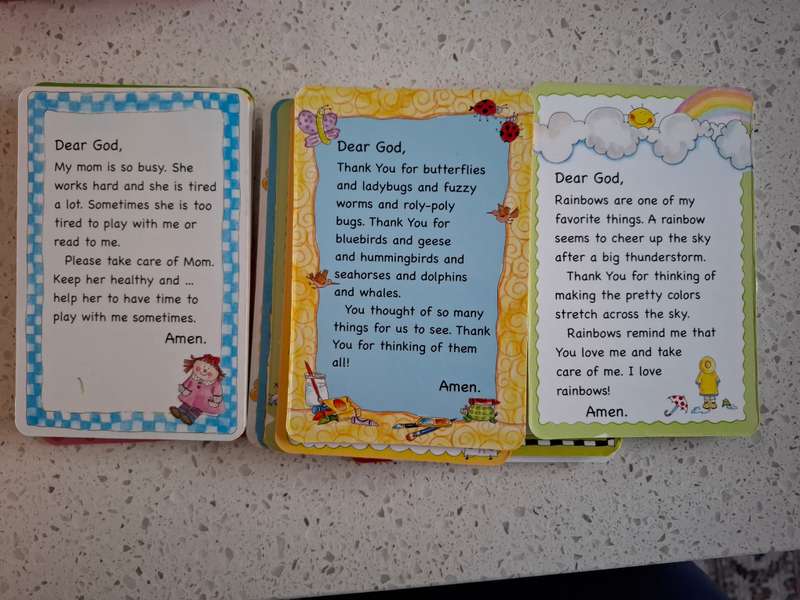 Dear God,
My mom is so busy. She
works hard and she is tired
a lot. Sometimes she is too
tired to play with me or
read to me.
Please take care of Mom.
Keep her healthy and ...
help her to have time to
play with me sometimes.
Amen.
Dear God,
Thank You for butterflies
and ladybugs and fuzzy
worms and roly-poly
bugs. Thank You for
bluebirds and geese
and hummingbirds and
seahorses and dolphins
and whales.
You thought of so many
things for us to see. Thank
You for thinking of them
all!
Amen.
Dear God,
Rainbows are one of my
favorite things. A rainbow
seems to cheer up the sky
after a big thunderstorm.
Thank You for thinking of
making the pretty colors
stretch across the sky.
Rainbows remind me that
You love me and take
care of me. I love
rainbows!
Amen.